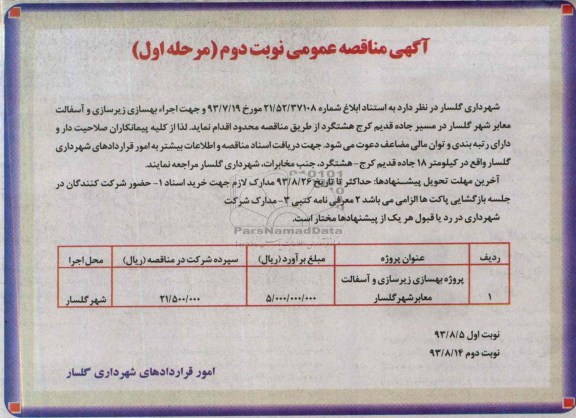 آگهی مناقصه عمومی نوبت دوم (مرحله اول)
شهرداری گلسار در نظر دارد به استناد ابلاغ شماره ۲۱/۵۲/۳۷۱۰۸ مورخ ۹۳/۷/۱۹ و جهت اجراء بهسازی زیرسازی و آسفالت
معابر شهر گلسار در مسیر جاده قدیم کرج هشتگرد از طریق مناقصه محدود اقدام نماید. لذا از کلیه پیمانکاران صلاحیت دار و
دارای رتبه بندی و توان مالی مضاعف دعوت می شود. جهت دریافت اسناد مناقصه و اطلاعات بیشتر به امور قراردادهای شهرداری
گلسار واقع در کیلومتر ۱۸ جاده قدیم کرج - هشتگرد، جنب مخابرات، شهرداری گلسار مراجعه نمایند.
آخرین مهلت تحویل پیشنهادها: حداکثر تا تاریخ ۹۳/۸/۲۶ مدارک لازم جهت خرید اسناد ۱- حضور شرکت کنندگان در
جلسه بازگشایی پاکت ها الزامی می باشد ۲ معرفی نامه کتبی ۳- مدارک شرکت
شهرداری در رد یا قبول هر یک از پیشنهادها مختار است.
ParsNamadData
ردیف عنوان پروژه مبلغ برآورد (ریال) سپرده شرکت در مناقصه (ریال) محل اجرا
۱ پروژه بهسازی زیرسازی و آسفالت معابر شهر گلسار ۵/۰۰۰/۰۰۰/۰۰۰ ۲۱/۵۰۰/۰۰۰ شهر گلسار
نوبت اول ۹۳/۸/۵
نوبت دوم ۹۳/۸/۱۴
امور قراردادهای شهرداری گلسار